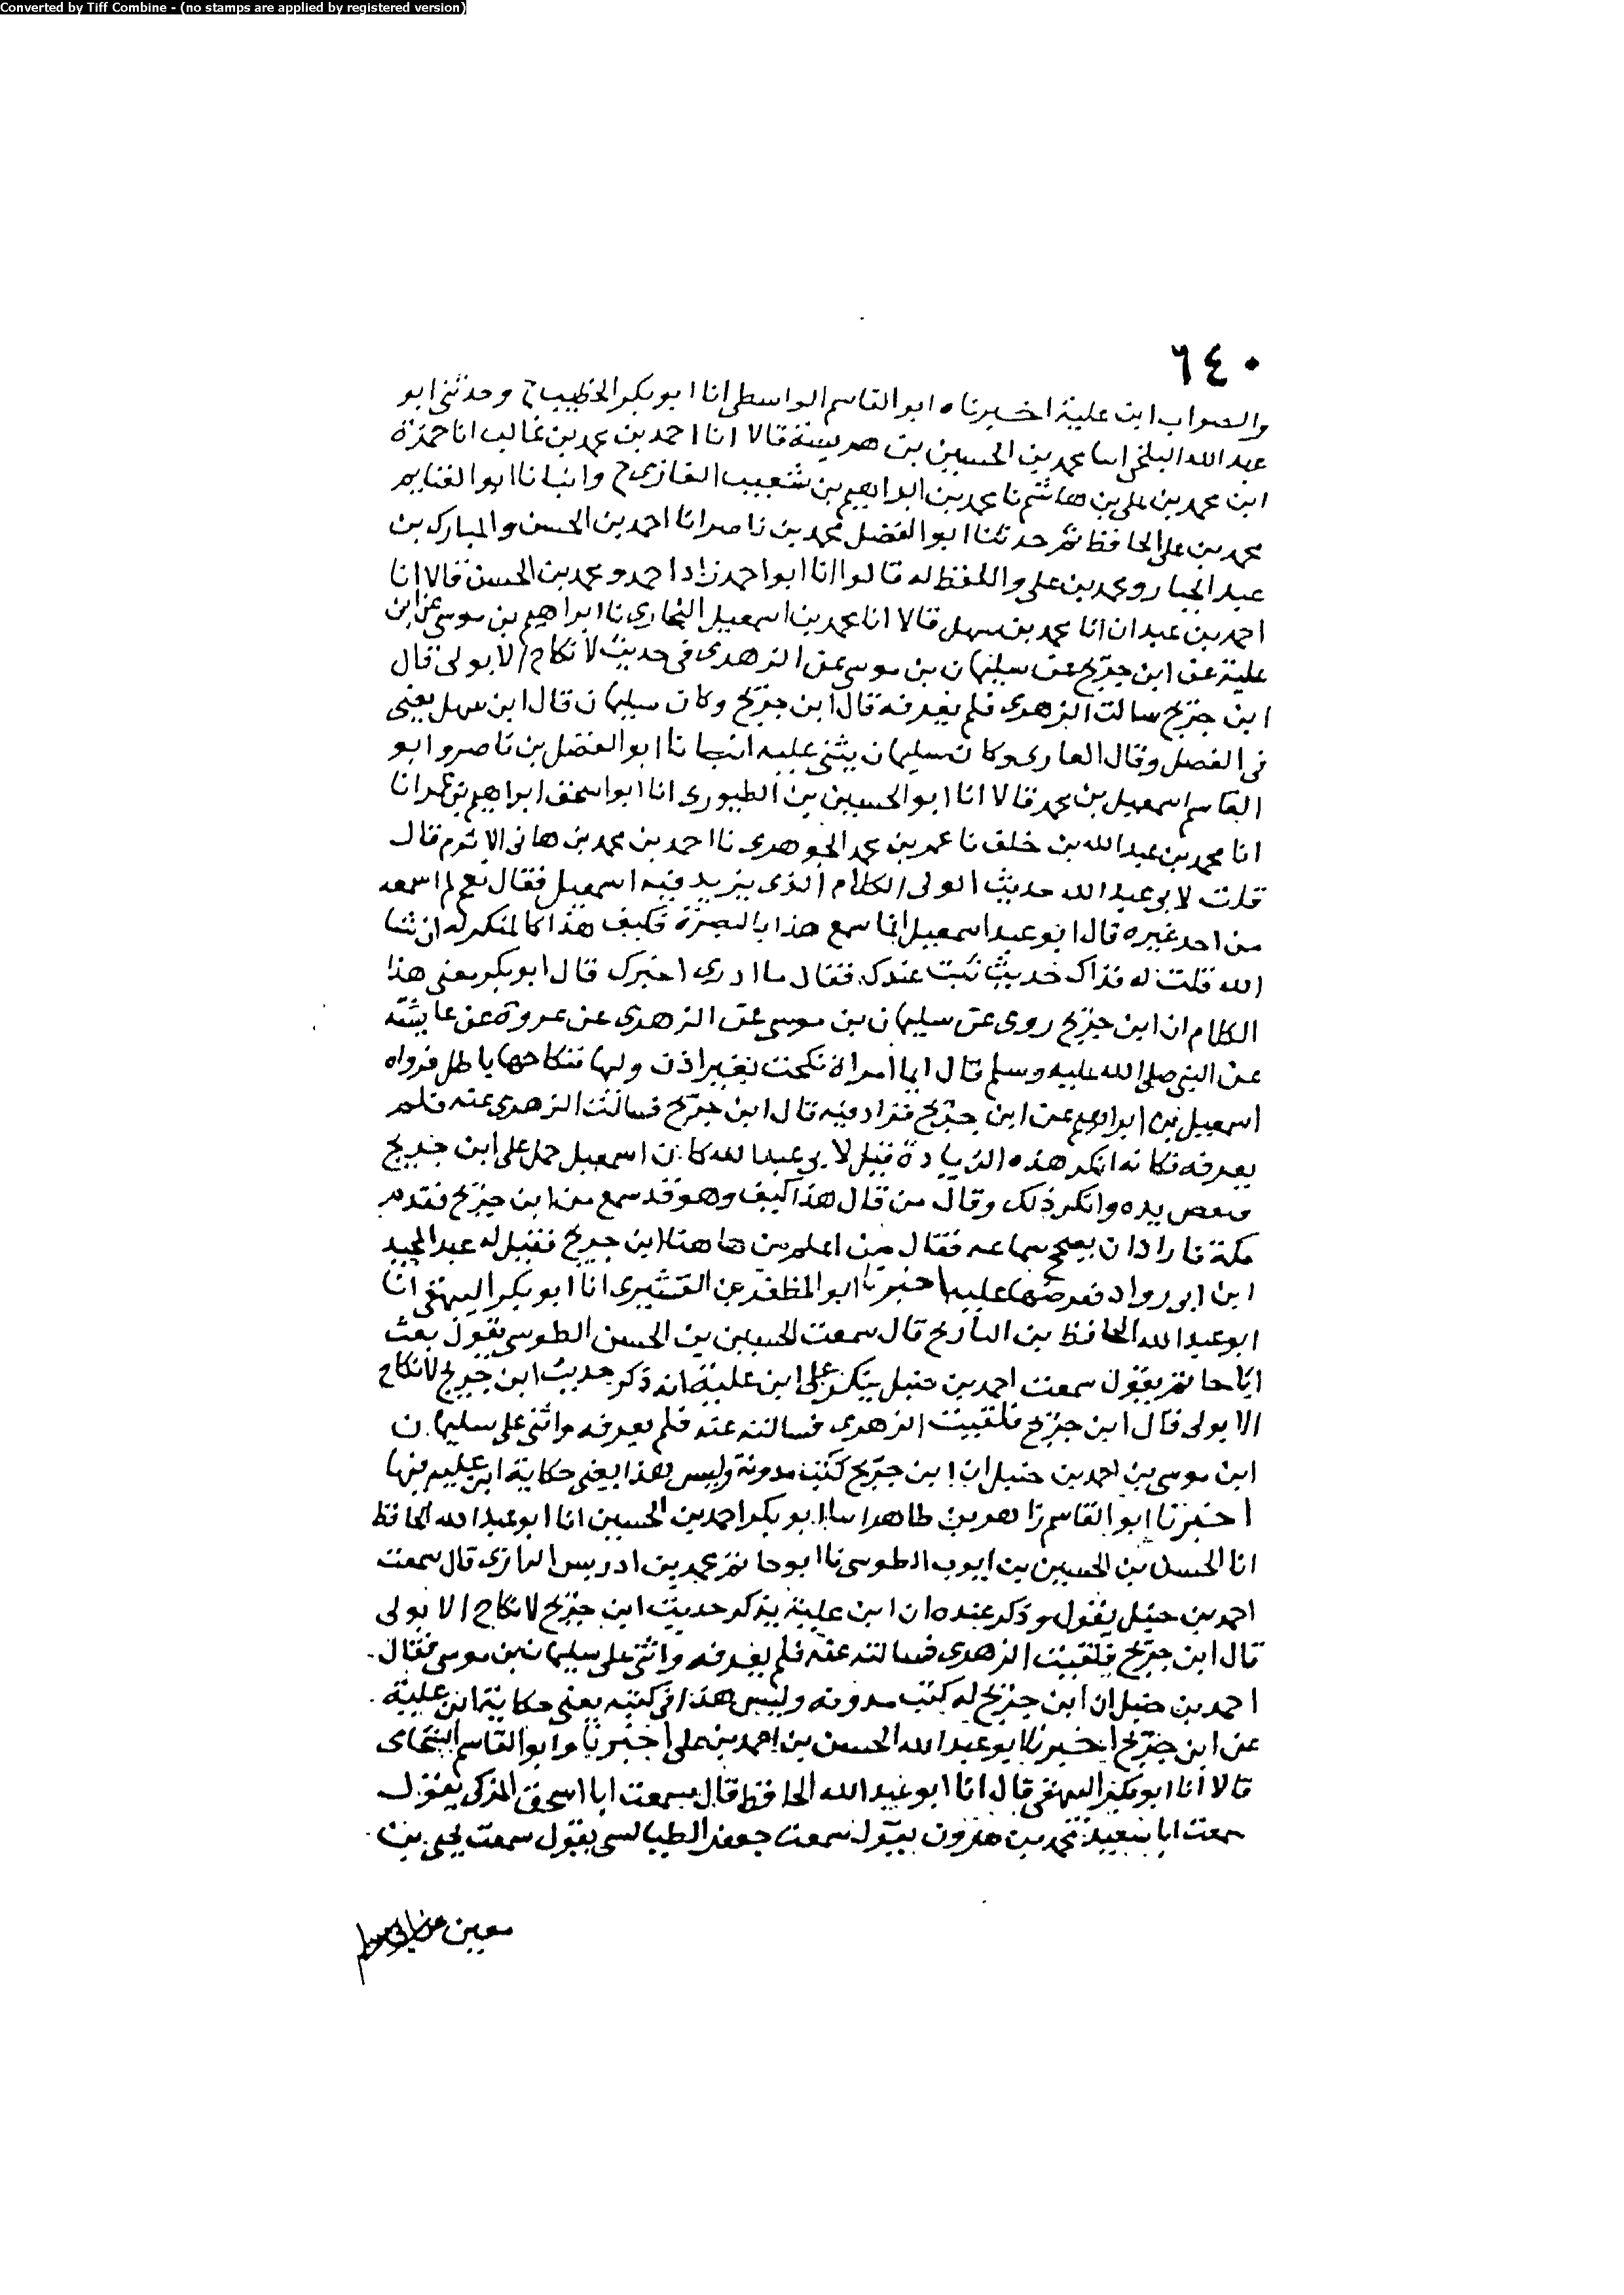 Converted by Tiff Combine - (no stamps are applied by registered version)
٦٤٠
والصواب ابن علية اخبرناه ابو القاسم الواسطي انا ابو بكر الخطيب ح وحدثني ابو
عبد الله البلخي انا محمد بن الحسين بن هريسة قالا انا احمد بن محمد بن غالب انا حمزة
ابن محمد بن علي بن هاشم نا محمد بن ابراهيم بن شعيب الغازي ح وانبانا ابو الغنايم
محمد بن علي الحافظ ثم حدثنا ابو الفضل محمد بن ناصر انا احمد بن الحسن والمبارك بن
عبد الجبار ومحمد بن علي واللفظ له قالوا انا ابو احمد زاد احمد ومحمد بن الحسن قالا انا
احمد بن عبدان انا محمد بن سهل قالا انا محمد بن اسمعيل البخاري نا ابراهيم بن موسى عن ابن
علية عن ابن جريج عن سليمان بن موسى عن الزهري في حديث لا نكاح الا بولي قال
ابن جريج سالت الزهري فلم يعرفه قال ابن جريج وكان سليمان قال ابن سهل يعني
في الفضل وقال الغازي وكان سليمان يثني عليه انبانا ابو الفضل بن ناصر وابو
القاسم اسمعيل بن محمد قالا انا ابو الحسين بن الطيوري انا ابو اسحق ابراهيم بن عمر انا
انا محمد بن عبد الله بن خلف نا عمر بن محمد الجوهري نا احمد بن محمد بن هاني الاثرم قال
قلت لابو عبد الله حديث الولي الكلام الذي يزيد فيه اسمعيل فقال نعم لم اسمعه
من احد غيره قال ابو عبد اسمعيل انما سمع هذا بالبصرة فكيف هذا كالمنكر له ان شا
الله قلت له فذاك حديث ثبت عندك فقال ما ادري اخبرك قال ابو بكر معنى هذا
الكلام ان ابن جريج روى عن سليمان بن موسى عن الزهري عن عروة عن عايشة
عن النبي صلى الله عليه وسلم قال ايما امراة نكحت بغير اذن وليها فنكاحها باطل فرواه
اسمعيل بن ابراهيم عن ابن جريج فزاد فيه قال ابن جريج فسالت الزهري عنه فلم
يعرفه فكانه انكر هذه الزيادة فقيل لابي عبد الله كان اسمعيل حمل على ابن جريج
فنفض يده وانكر ذلك وقال من قال هذا كيف وهو قد سمع من ابن جريج فقدم
مكة فاراد ان يصحح سماعه فقال من اعلم من هاهنا لابن جريج فقيل له عبد المجيد
ابن ابي رواد فعرضها عليه اخبرنا ابو المظفر بن القشيري انا ابو بكر البيهقي انا
ابو عبد الله الحافظ بن التاريخ قال سمعت الحسين بن الحسن الطوسي يقول سمعت
ابا حاتم يقول سمعت احمد بن حنبل ينكر على ابن علية انه ذكر حديث ابن جريج لا نكاح
الا بولي قال ابن جريج فلقيت الزهري فسالته عنه فلم يعرفه واثنى على سليمان
ابن موسى بن احمد بن حنبل ان ابن جريج كتبه مدونة وليس هذا يعني حكاية ابن علية فيها
اخبرنا ابو القاسم زاهر بن طاهر انا ابو بكر احمد بن الحسين انا ابو عبد الله الحافظ
انا الحسن بن الحسين بن ايوب الطوسي نا ابو حاتم محمد بن ادريس الرازي قال سمعت
احمد بن حنبل يقول وذكر عنده ان ابن علية يذكر حديث ابن جريج لا نكاح الا بولي
قال ابن جريج فلقيت الزهري فسالته عنه فلم يعرفه واثنى على سليمان بن موسى فقال
احمد بن حنبل ان ابن جريج له كتب مدونه وليس هذا في كتبه يعني حكاية ابن علية
عن ابن جريج اخبرنا ابو عبد الله الحسين بن احمد بن علي اخبرنا وابو القاسم الشحامي
قالا انا ابو بكر البيهقي قال انا ابو عبد الله الحافظ قال سمعت ابا اسحق المزكي يقول
سمعت ابا سعيد محمد بن هرون يقول سمعت جعفر الطيالسي يقول سمعت يحيى بن
معين